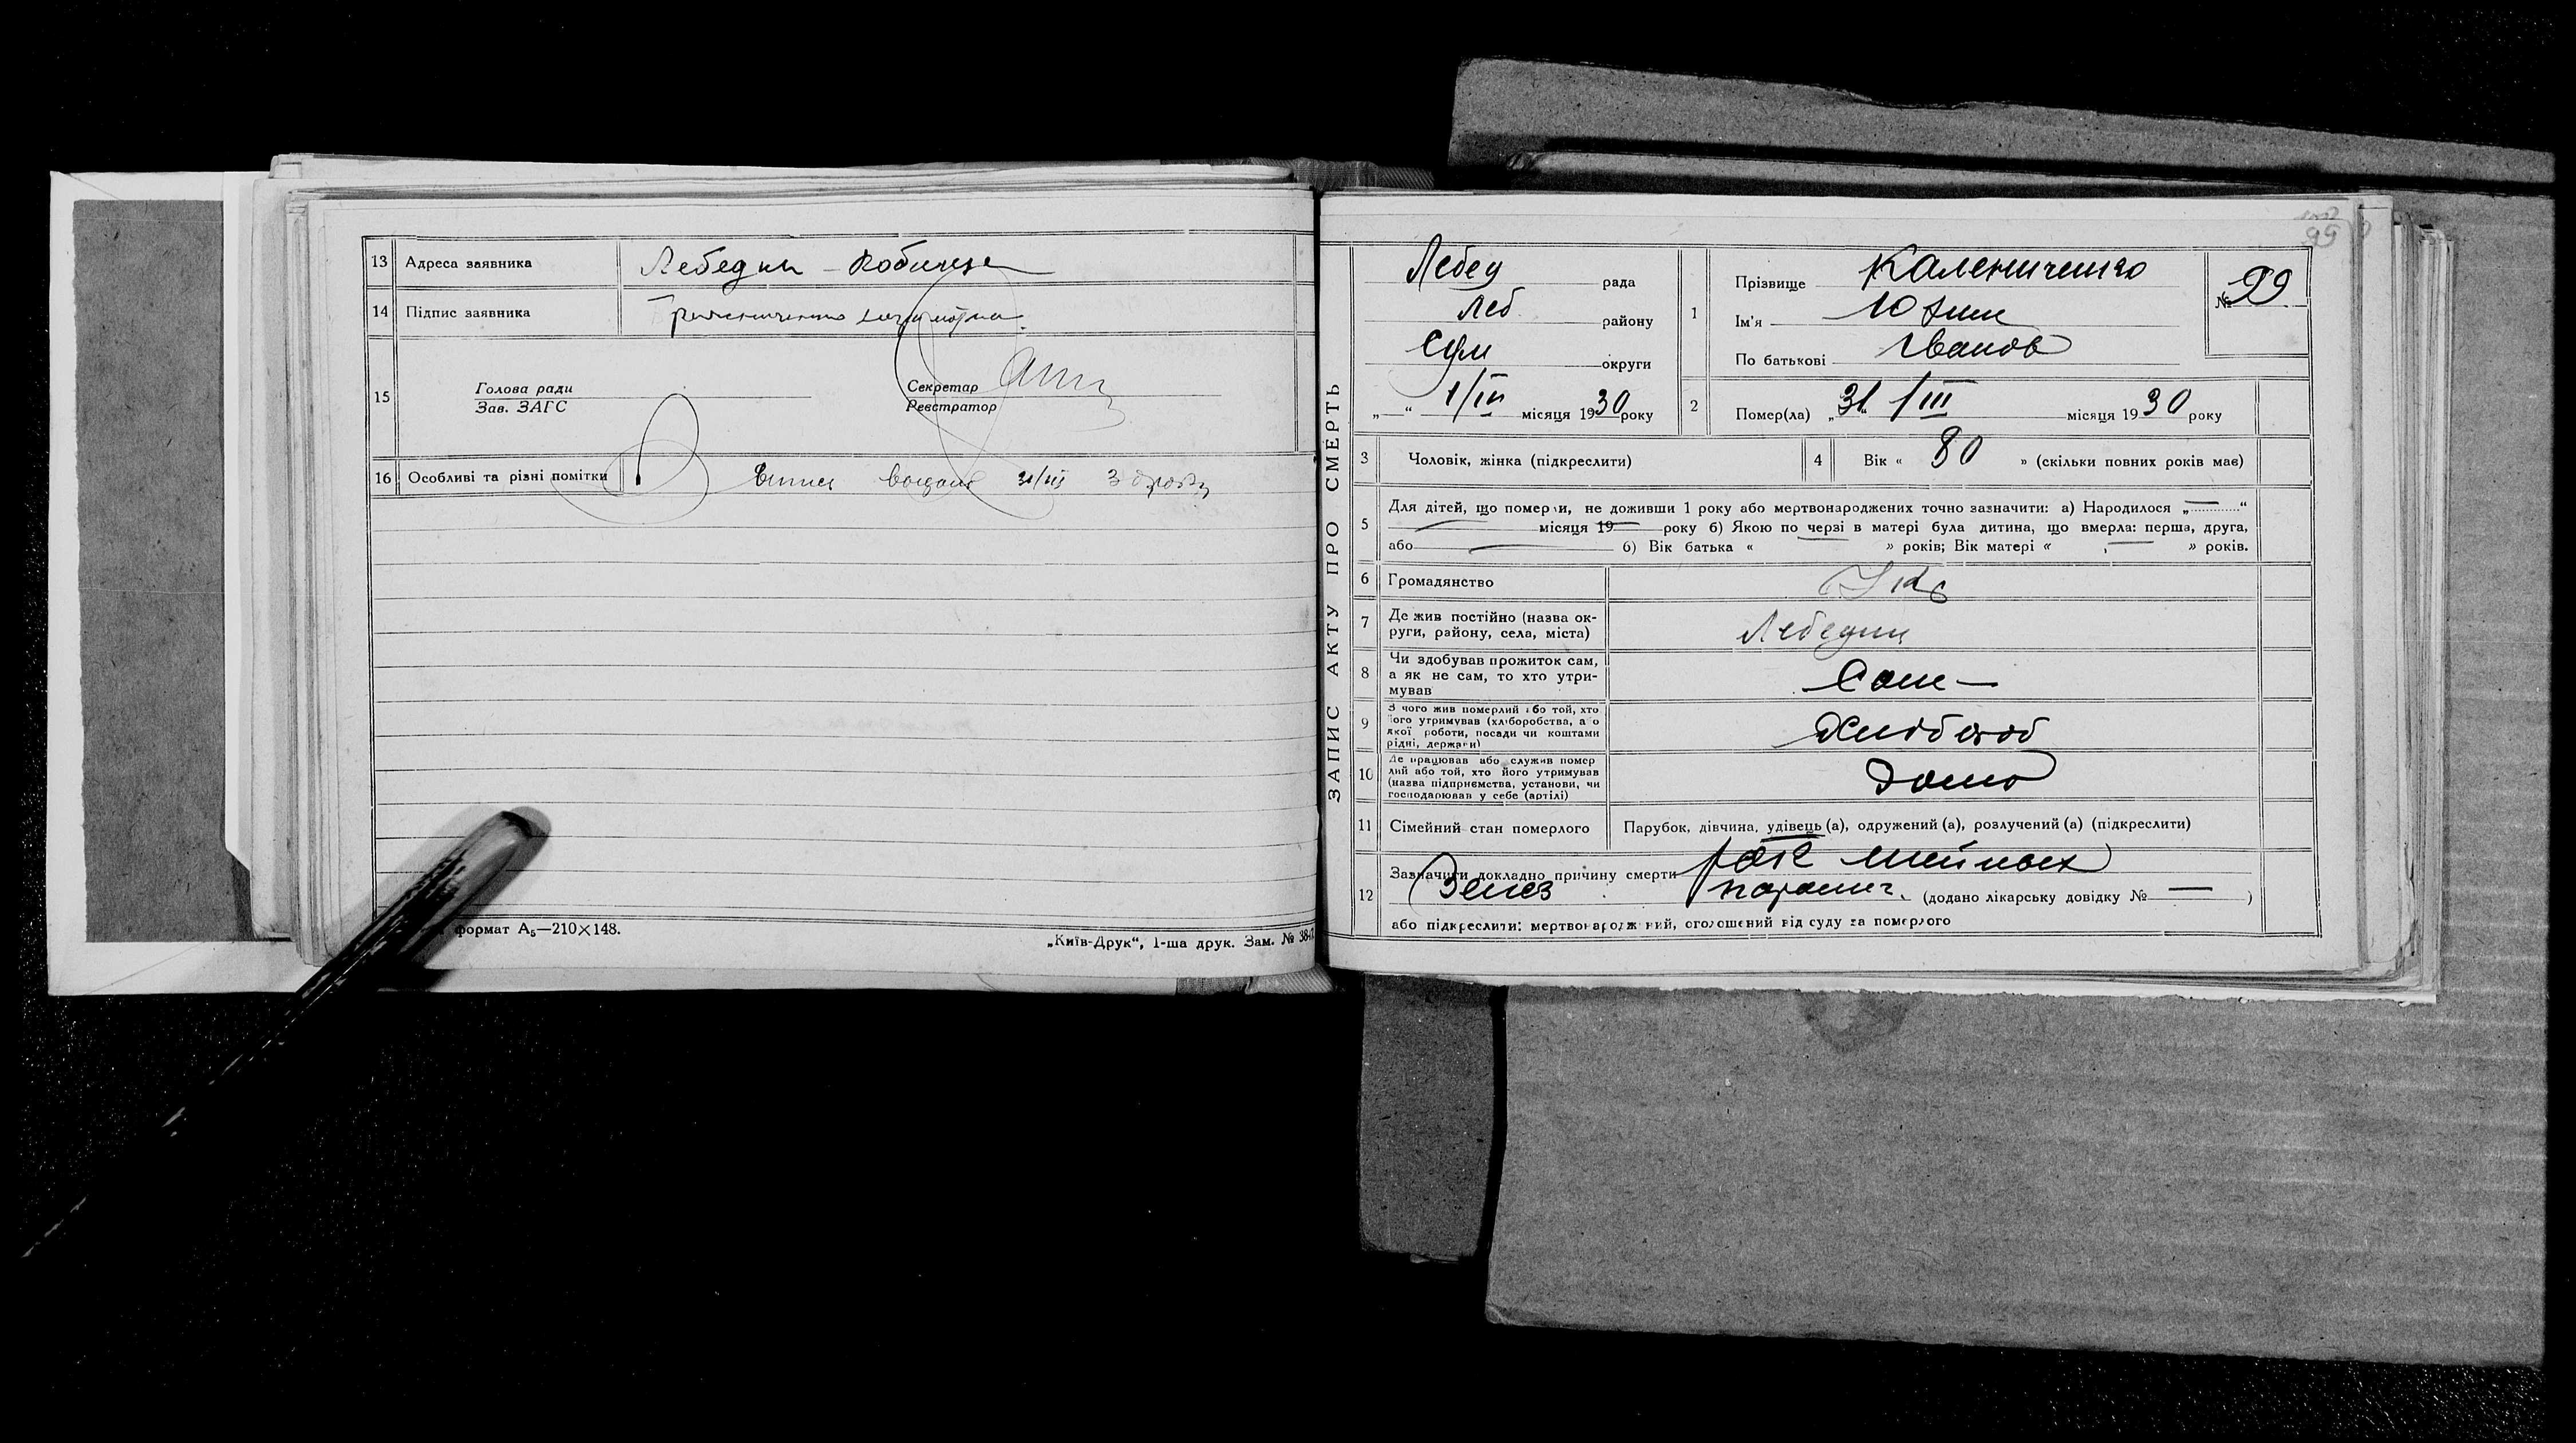 13 Адреса заявника Лебедин
14 Підпис заявника
15 Голова ради
Зав. ЗАГС
Секретар
Реєстратор
16 Особливі та різні помітки 31/III
формат А5—210×148.
„Київ-Друк“, 1-ша друк. Зам. № 38-
ЗАПИС АКТУ ПРО СМЕРТЬ
99
Лебед рада
Леб району
Сум округи
„—“ 1/IV місяця 1930 року
1 Прізвище Калениченко
Ім'я
По батькові Іванов
№ 99
2 Помер(ла) „31“ /III місяця 1930 року
3 Чоловік, жінка (підкреслити)
4 Вік « 80 » (скільки повних років має)
5 Для дітей, що померли, не доживши 1 року або мертвонароджених точно зазначити: а) Народилося „—“
— місяця 19— року б) Якою по черзі в матері була дитина, що вмерла: перша, друга,
або — б) Вік батька « » років; Вік матері « — » років.
6 Громадянство Укр
7 Де жив постійно (назва ок-
руги, району, села, міста) Лебедин
8 Чи здобував прожиток сам,
а як не сам, то хто утри-
мував Сам —
9 З чого жив померлий або той, хто
його утримував (хліборобства, або
якої роботи, посади чи коштами
рідні, держави) Хлібороб
10 Де працював або служив помер
лий або той, хто його утримував
(назва підприємства, установи, чи
господарював у себе (артілі) Дома
11 Сімейний стан померлого Парубок, дівчина, удівець (а), одружений (а), розлучений (а) (підкреслити)
12 Зазначити докладно причину смерти рак
желез (додано лікарську довідку № — )
або підкреслити: мертвонароджений, оголошений від суду за померлого